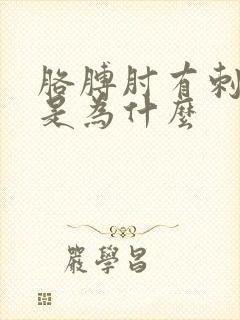 胳膊肘有刺
是為什麼
嚴學昌